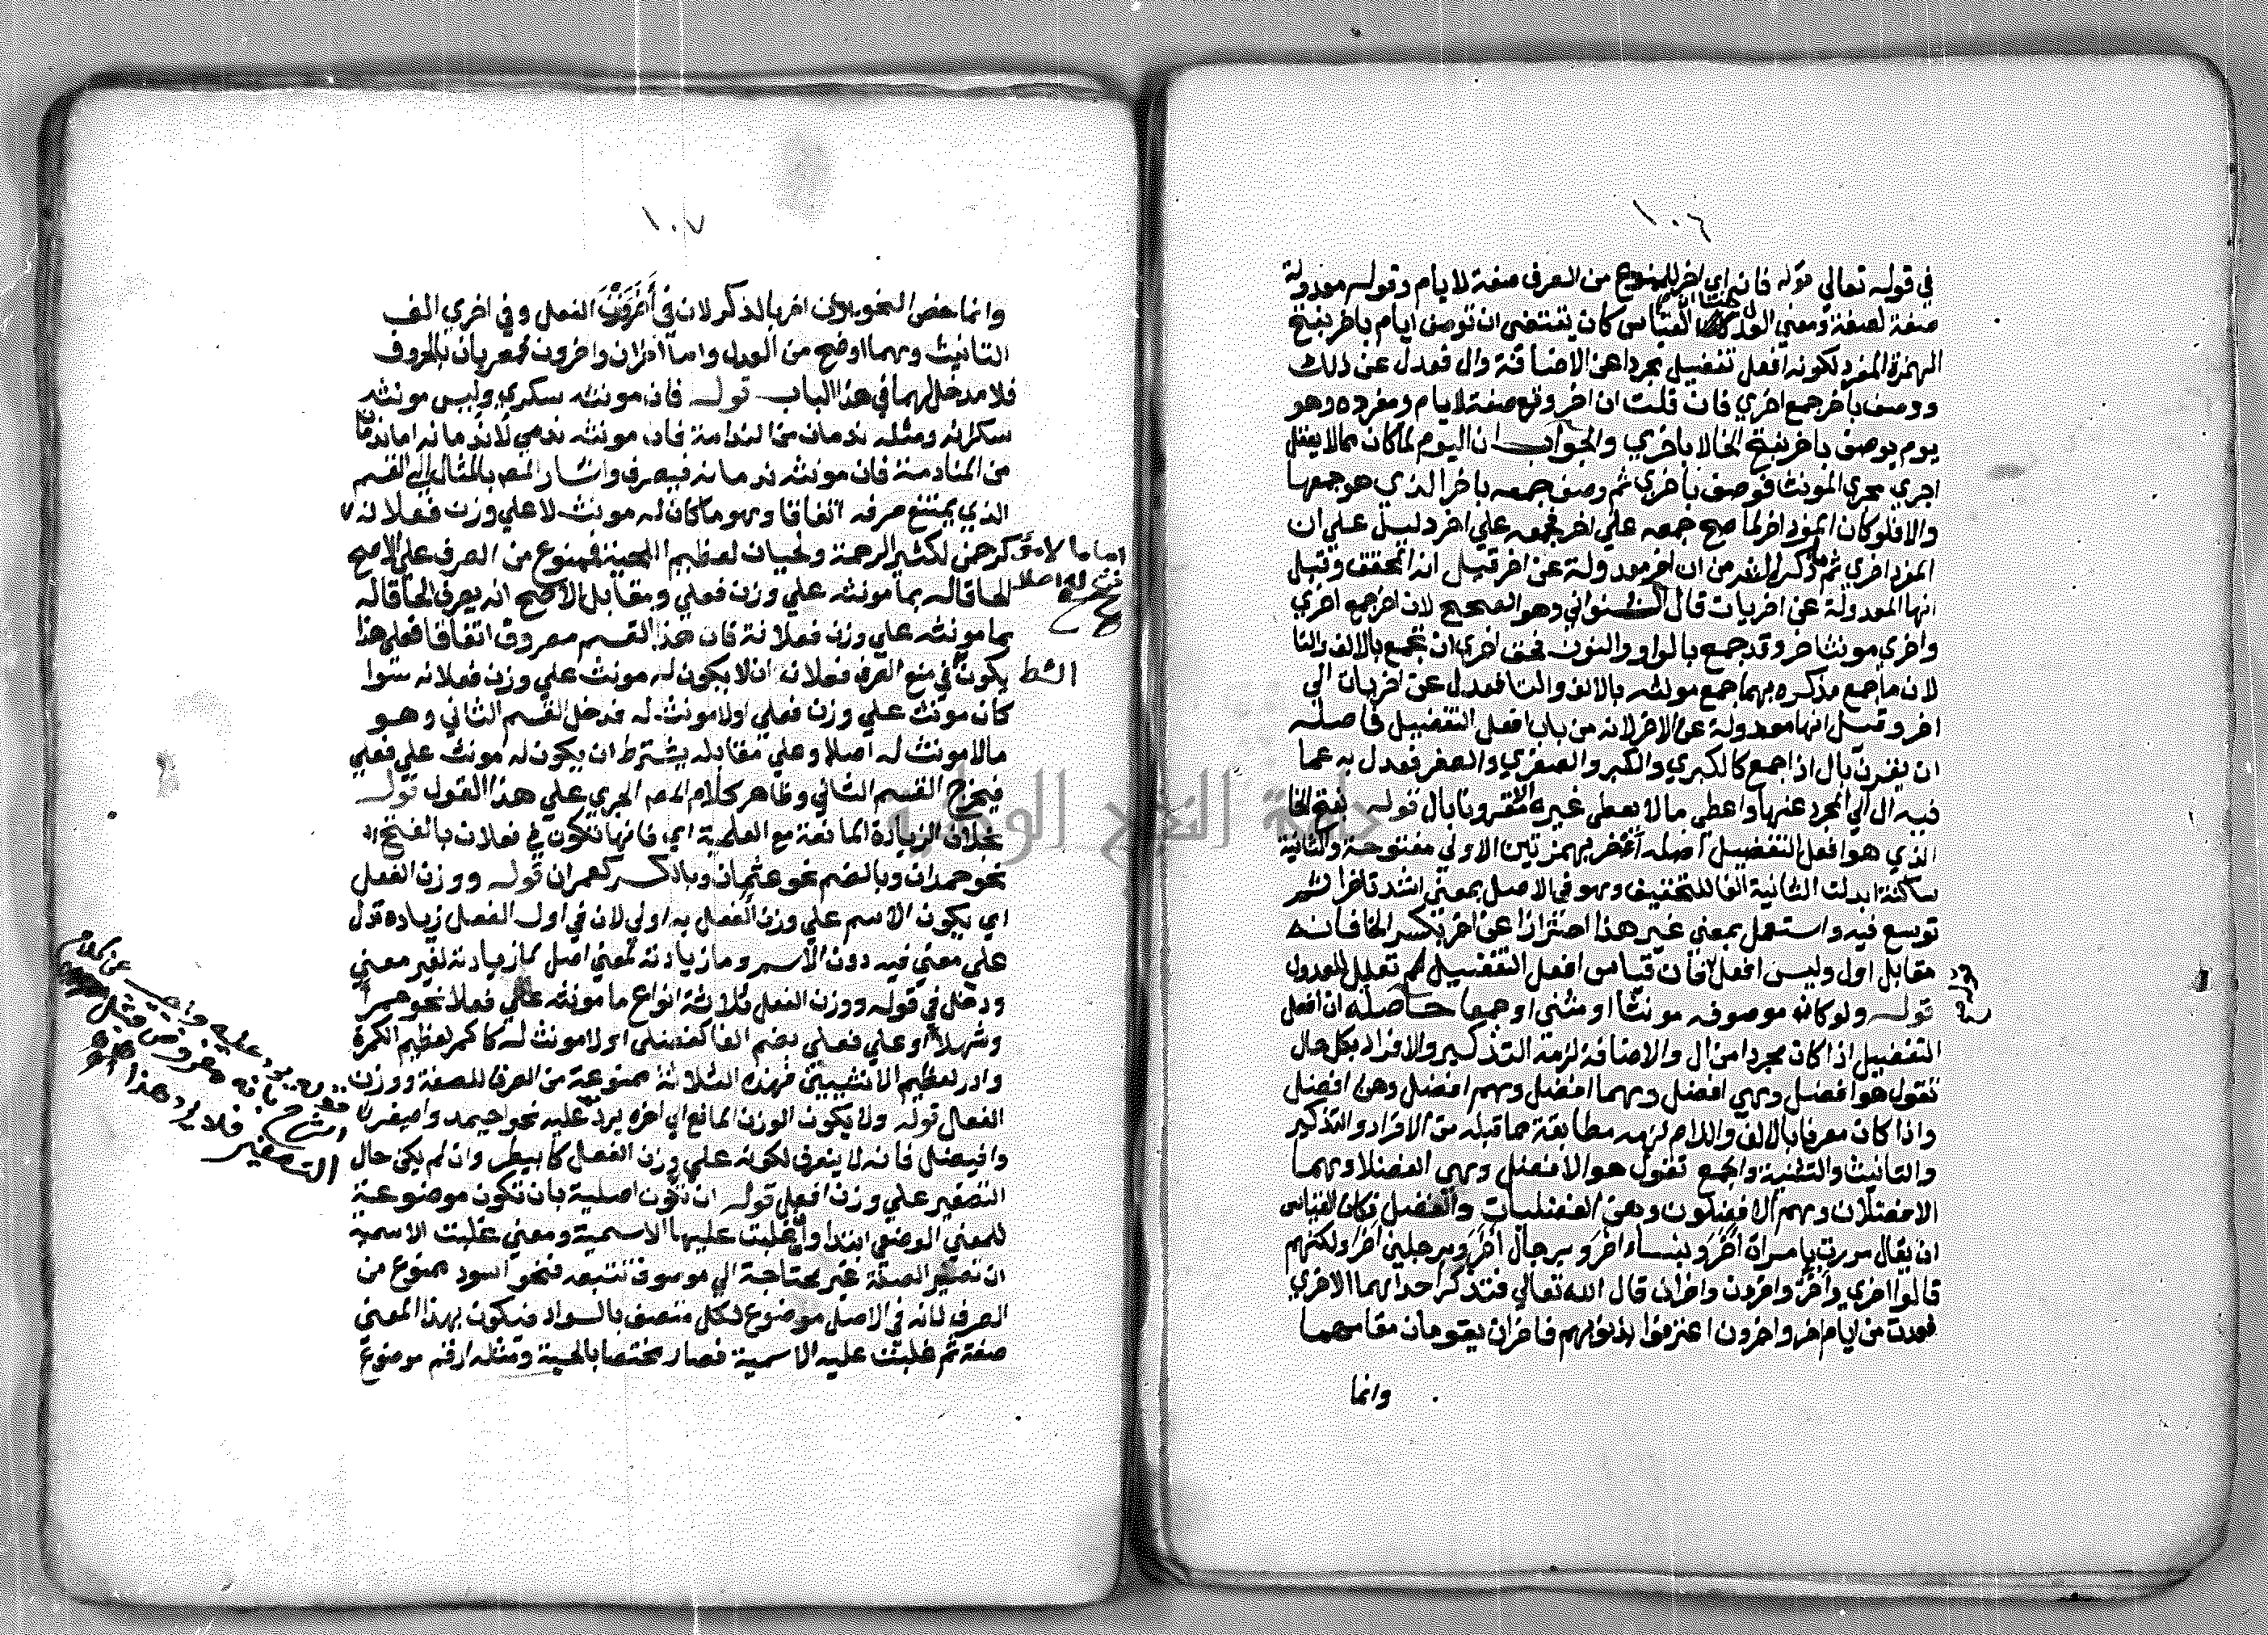 ١٠٦
في قوله تعالي قوله فانه اي اخر الممنوع من الصرف صفة لايام وقوله معدولة
صفة لصفة ومعني العدل القياس كان يقتضي ان توصف ايام باخر بفتح
الهمزة المفرد لكونه افعل تفضيل مجردا عن الاضافة وال فعدل عن ذلك
ووصف باخر جمع اخري فان قلت ان اخر وقع صفة لايام ومفرده وهو
يوم يوصف باخر بفتح الخا لا باخري والجواب ان اليوم لما كان مما لا يعقل
اجري مجري المونث فوصف باخري ثم وصف جمعه باخر الذي هو جمعها
والا فلو كان المفرد اخر لما صح جمعه علي اخر فجمعه علي اخر دليل علي ان
المفرد اخري ثم ما ذكره من ان اخر معدولة عن اخر قيل انه التحقق وقيل
انها المعدولة عن اخريات قال الشنواني وهو الصحيح لان اخر جمع اخري
واخري مونث اخر وقد جمع بالواو والنون فحق اخري ان تجمع بالالف والتا
لان ما جمع مذكره بهما جمع مونثه بالالف والتا فعدل عن اخريات الي
اخر وقيل انها معدولة عن الاخر لانه من باب افعل التفضيل فاصله
ان يقترن بال اذا جمع كالكبري والكبر والصغري والصغر فعدل به عما
فيه ال الي المجرد عنها واعطي ما لا يعطي غيره الا مقرونا بال قوله بفتح الخا
الذي هو افعل التفضيل اصله أأخر بهمزتين الاولي مفتوحة والثانية
ساكنة ابدلت الثانية الفا للتخفيف وهو في الاصل بمعني اشد تاخرا ثم
توسع فيه واستعمل بمعني غير هذا احترازا عن اخر بكسر الخا فانه
مقابل اول وليس افعل فان قياس افعل التفضيل تعليل للعدول
قوله ولو كان موصوفه مونثا او مثني او جمعا حاصله ان افعل
التفضيل اذا كان مجردا من ال والاضافة لزمه التذكير والافراد بكل حال
تقول هو افضل وهي افضل وهما افضل وهم افضل وهن افضل
واذا كان معرفا بالالف واللام لزمه مطابقة ما قبله من الافراد والتذكير
والتانيث والتثنية والجمع تقول هو الافضل وهي الفضلا وهما
الافضلان وهم الافضلون وهن الفضليات والفضل فكان القياس
ان يقال مررت بامراة اخر وبنساء اخر وبرجال اخر وبرجلين اخر ولكنهم
قالوا اخري واخر واخرون واخران قال الله تعالي فتذكر احداهما الاخري
فعدت من ايام اخر واخرون اعترفوا بذنوبهم فاخران يقومان مقامهما
وانما
١٠٧
وانما خص النحويون اخر بالذكر لان في أخرون الفعلي وفي اخري الف
التانيث وهما اوضح من العدل واما اخران واخرون فمعربان بالحروف
فلا مدخل لهما في هذا الباب قوله فان مونثه سكري وليس مونثه
سكرانه ومثله ندمان من الندامة فان مونثه ندمي لا ندمانه اما ندمان
من المنادمة فان مونثه ندمانه فيصرف واشار المص بالمثال الي القسم
الذي يمتنع صرفه اتفاقا وهو ما كان له مونث لا علي وزن فعلانه
كرحمن لكثير الرحمة ولحيان لعظيم اللحية فممنوع من الصرف علي الاصح
الحاقا له بما مونثه علي وزن فعلي ومقابل الاصح انه يصرف الحاقا له
بما مونثه علي وزن فعلانة فان هذا القسم مصروف اتفاقا فعلي هذا
يكون في منع الصرف فعلانه ان لا يكون له مونث علي وزن فعلانه سوا
كان مونث علي وزن فعلي او لا مونث له فدخل القسم الثاني وهو
مالا مونث له اصلا وعلي مقابله يشترط ان يكون له مونث علي فعلي
فيخرج القسم الثاني وظاهر كلام المص الجري علي هذا القول قوله
بخلاف الزيادة المانعة مع العلمية اي فانها تكون في فعلان بالفتح
نحو حمدان وبالضم نحو عثمان وبالكسر كعمران قوله ووزن الفعل
اي يكون الاسم علي وزن الفعل به اولي لان في اول الفعل زيادة تدل
علي معني فيه دون الاسم وما زيادته لمعني اصل لما زيادته لغير معني
ودخل في قوله ووزن الفعل ثلاثة انواع ما مونثه علي فعلا نحو حمرا
وشهلا او علي فعلي بضم الفا كفضلي او لا مونث له كاكمر لعظيم الكمرة
وادر لعظيم الانثيين فهذه الثلاثة ممنوعة من الصرف للصفة ووزن
الفعل قوله ولا يكون الوزن المانع الي اخره يرد عليه نحو احيمد واصيفر
وافيضل فانه لا ينصرف لكونه علي وزن الفعل كابيطر وان لم يكن حال
التصغير علي وزن افعل قوله ان تكون اصلية بان تكون موضوعة
للمعني الوصفي ابتدا وان غلبت عليها الاسمية ومعني غلبت الاسمية
ان تصير الصفة غير محتاجة الي موصوف تتبعه فنحو اسود ممنوع من
الصرف لانه في الاصل موضوع لكل متصف بالسواد فيكون بهذا المعني
صفة ثم غلبت عليه الاسمية فصار مختصا بالحية ومثله ارقم موضوع
اما ما لا مونث له اصلا
صح
الشط
قوله يرد عليه واجيب عن كلام
الشارح بانه مفروض قبل
التصغير فلا يرد هذا